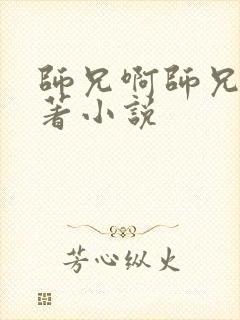 師兄啊師兄
著小説
芳心纵火